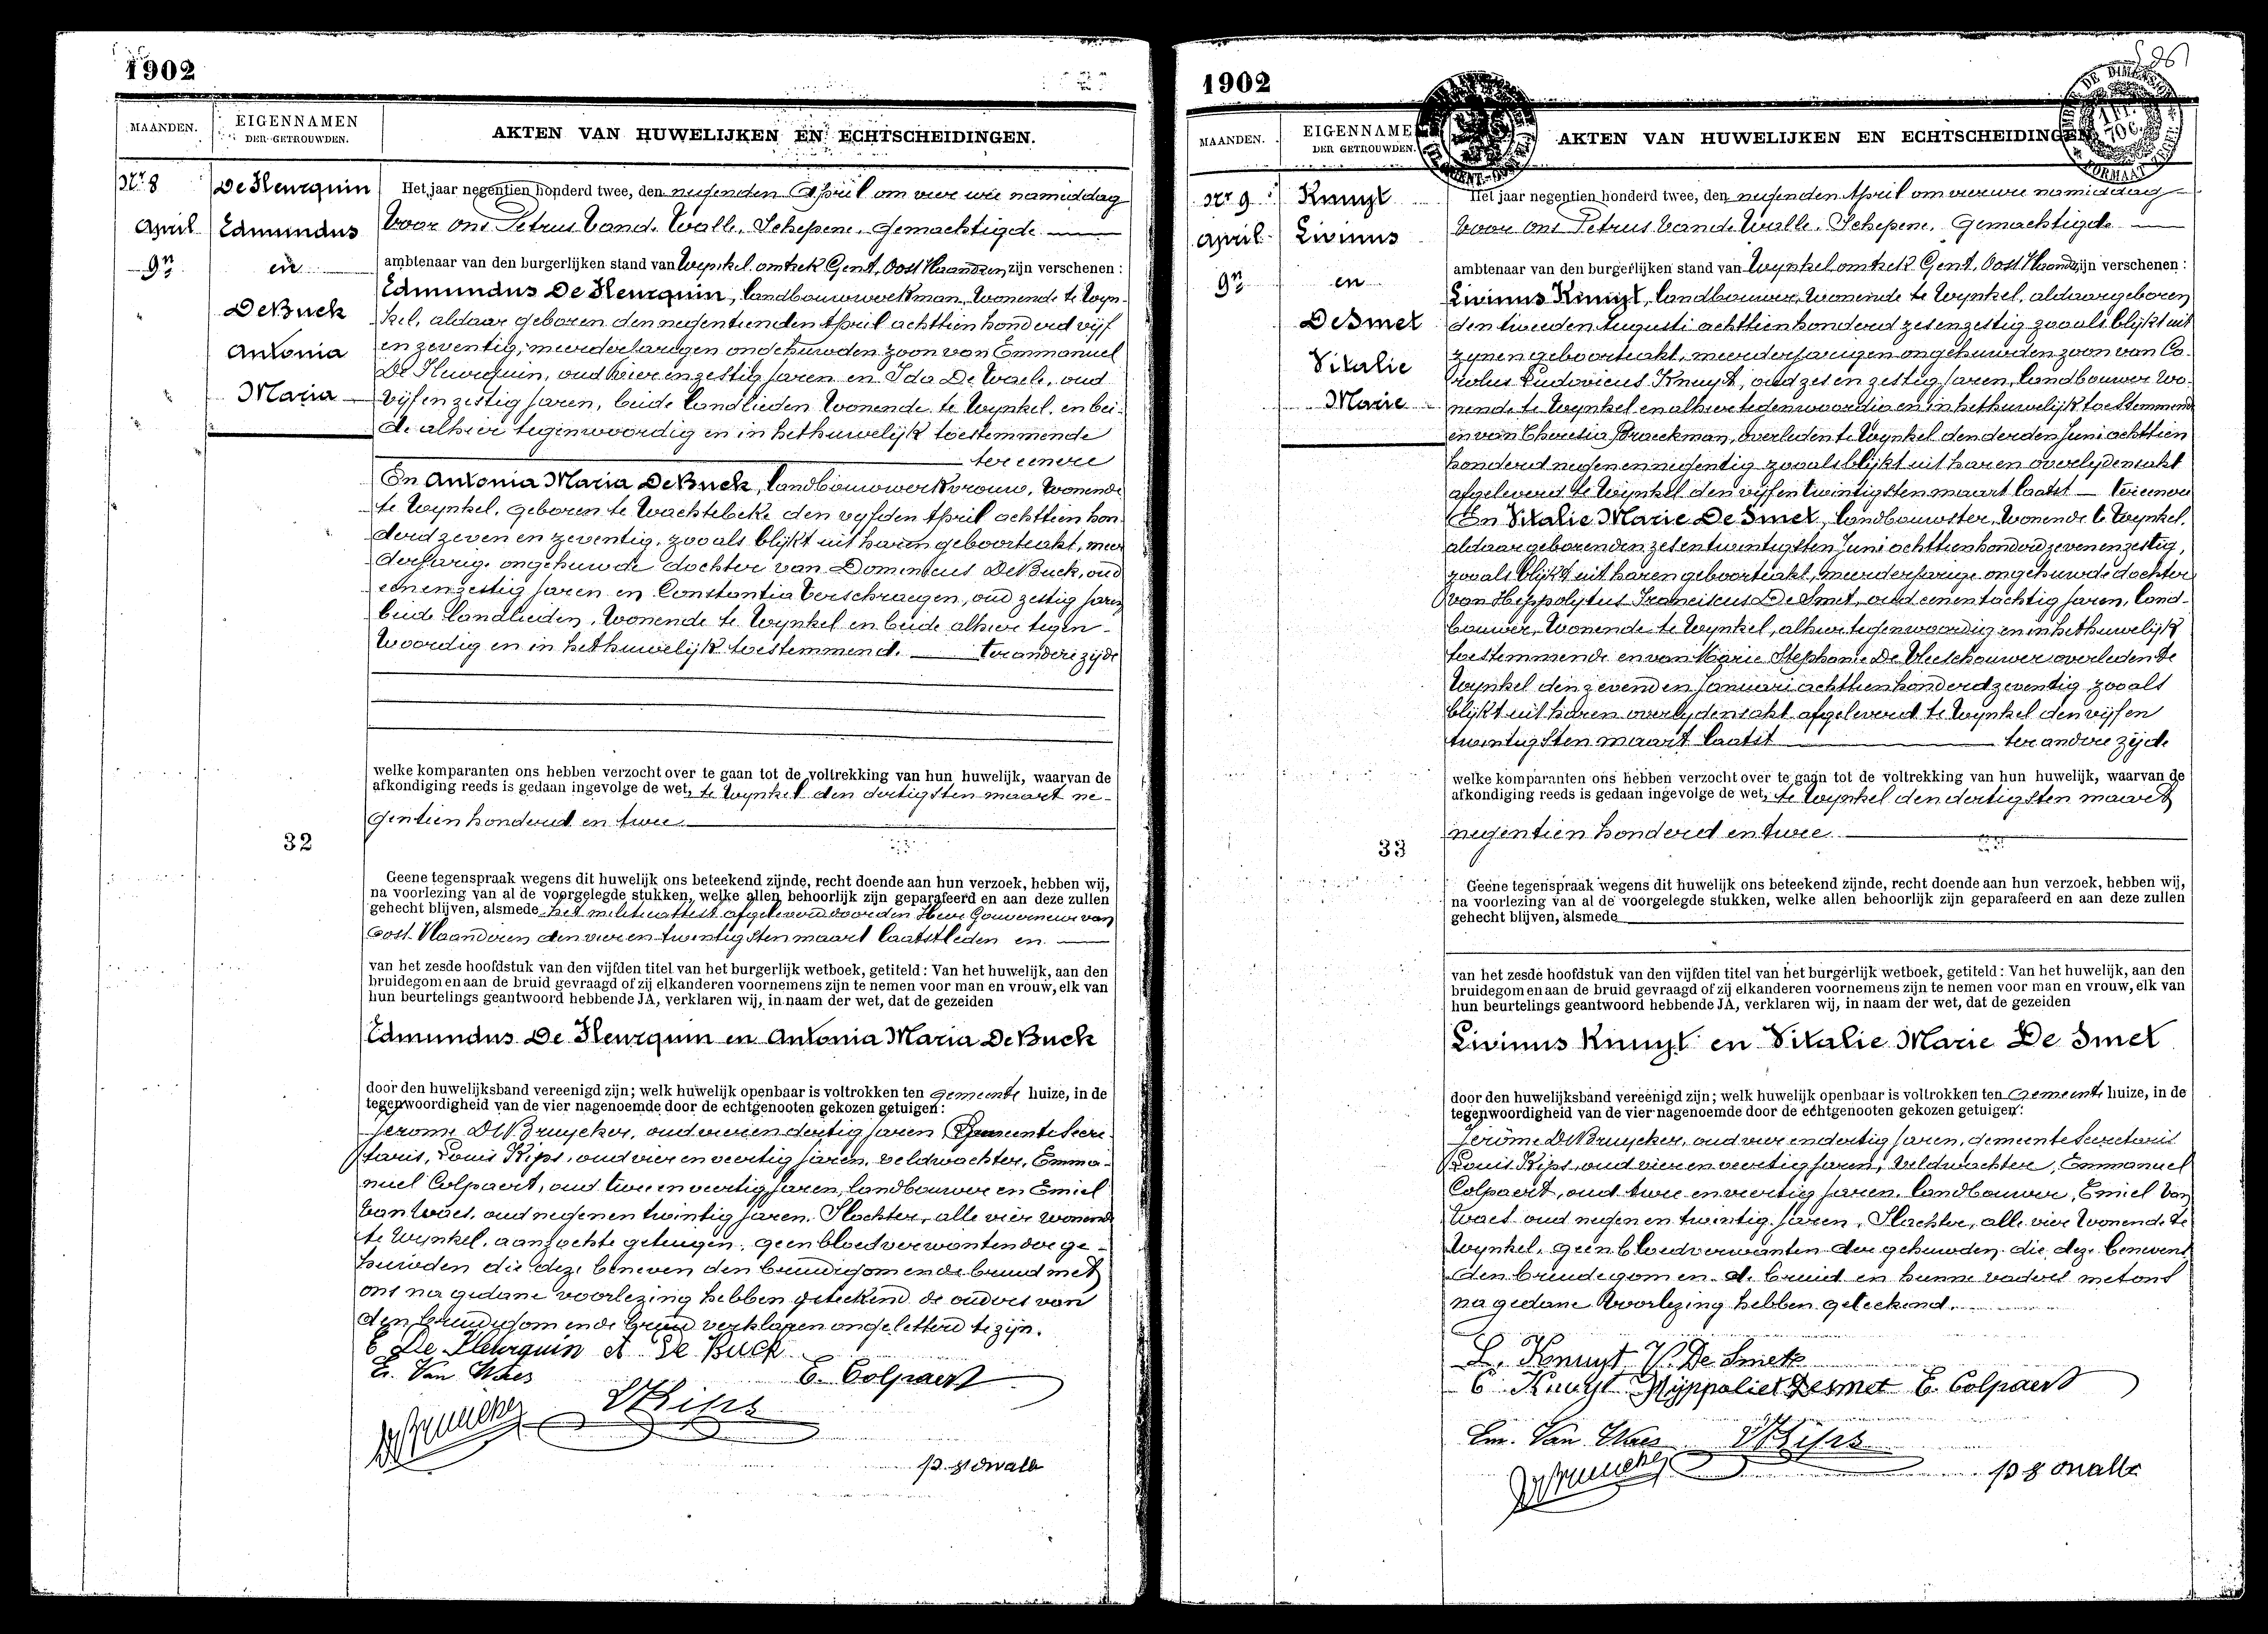 1902
MAANDEN.
EIGENNAMEN
DER GETROUWDEN.
AKTEN VAN HUWELIJKEN EN ECHTSCHEIDINGEN.
Nr 8
April
9n
De Fleurquin
Edmundus
en
De Buck
Antonia
Maria
Het jaar negentien honderd twee, den negenden April om vier ure namiddag
Voor ons Petrus Vande Walle, Schepene, gemachtigde
ambtenaar van den burgerlijken stand van Wynkel omtrek Gent, Oost Vlaanderen zijn verschenen :
Edmundus De Fleurquin, landbouwwerkman, wonende te Wyn-
kel, aldaar geboren den negentienden April achttien honderd vijf
en zeventig, meerderjarigen ongehuwden zoon van Emmanuel
De Fleurquin, oud vier en zestig jaren en Ida De Waele, oud
vijf en zestig jaren, beide landlieden wonende te Wynkel, en bei-
de alhier tegenwoordig en in het huwelijk toestemmende
ter eenere
En Antonia Maria De Buck, landbouwwerkvrouw, wonende
te Wynkel, geboren te Wachtebeke den vyfden April achttien hon
derd zeven en zeventig, zooals blijkt uit haren geboorteakt, meer
derjarige ongehuwde dochter van Dominicus De Buck, oud
een en zestig jaren en Constantia Verschraegen, oud zestig jaren
beide landlieden, wonende te Wynkel en beide alhier tegen-
woordig en in het huwelijk toestemmend. ter andere zijde
welke komparanten ons hebben verzocht over te gaan tot de voltrekking van hun huwelijk, waarvan de
afkondiging reeds is gedaan ingevolge de wet, te Wynkel den dertigsten maart ne-
gentien honderd en twee
32
Geene tegenspraak wegens dit huwelijk ons beteekend zijnde, recht doende aan hun verzoek, hebben wij,
na voorlezing van al de voorgelegde stukken, welke allen behoorlijk zijn geparafeerd en aan deze zullen
gehecht blijven, alsmede het militieattest afgeleverd door den Heer Gouverneur van
Oost-Vlaanderen den vier en twintigsten maart laatstleden en
van het zesde hoofdstuk van den vijfden titel van het burgerlijk wetboek, getiteld : Van het huwelijk, aan den
bruidegom en aan de bruid gevraagd of zij elkanderen voornemens zijn te nemen voor man en vrouw, elk van
hun beurtelings geantwoord hebbende JA, verklaren wij, in naam der wet, dat de gezeiden
Edmundus De Fleurquin en Antonia Maria De Buck
door den huwelijksband vereenigd zijn ; welk huwelijk openbaar is voltrokken ten gemeente huize, in de
tegenwoordigheid van de vier nagenoemde door de echtgenooten gekozen getuigen :
Jerome De Bruycker, oud vier en dertig jaren Gemeente Secre
taris, Louis Kips, oud vier en veertig jaren, veldwachter, Emma-
nuel Colpaert, oud twee en veertig jaren, landbouwer en Emiel
Van Waes, oud negen en twintig jaren, Slachter, alle vier wonende
te Wynkel, aanzochte getuigen, geen bloedverwanten der ge-
huwden die deze beneven den bruidegom en de bruid met
ons na gedane voorlezing hebben geteekend de ouders van
den bruidegom en de bruid verklaren ongeletterd te zijn.
E De Fleurquin A De Buck
E. Van Waes
E. Colpaert
LKips
1902
MAANDEN.
DER GETROUWDEN.
AKTEN VAN HUWELIJKEN EN ECHTSCHEIDINGEN
Nr 9
April
9n
Knuyt
Livinus
en
De Smet
Vitalie
Marie
Het jaar negentien honderd twee, den negenden April om vier ure namiddag
Voor ons Petrus Vande Walle, Schepene, Gemachtigde
ambtenaar van den burgerlijken stand van Wynkel omtrek Gent, Oost Vlaand zijn verschenen :
Livinus Knuyt, landbouwer, wonende te Wynkel, aldaar geboren
den tweeden Augusti achttien honderd zes en zestig zooals blijkt uit
zynen geboorteakt, meerderjarigen ongehuwden zoon van Ca-
rolus Ludovicus Knuyt, oud zes en zestig jaren, landbouwer wo-
nende te Wynkel en alhier tegenwoordig en in het huwelijk toestemmend
en van Theresia Braeckman, overleden te Wynkel den derden Juni achttien
honderd negen en negentig zooals blijkt uit haren overlydensakt
afgeleverd te Wynkel den vijf en twintigsten maart laatst ter eenere
En Vitalie Marie De Smet, landbouwster, wonende te Wynkel,
aldaar geboren den zes en twintigsten Juni achttien honderd zeven en zestig,
zooals blijkt uit haren geboorteakt, meerderjarige ongehuwde dochter
van Hippolytus Franciscus De Smet, oud een en tachtig jaren, land-
bouwer, wonende te Wynkel, alhier tegenwoordig en in het huwelijk
toestemmende en van Marie Stephanie De Vleeschouwer overleden te
Wynkel den zevenden Januari achttien honderd zeventig zooals
blijkt uit haren overlydensakt afgeleverd te Wynkel den vijf en
twintigsten maart laatst ter andere zijde
welke komparanten ons hebben verzocht over te gaan tot de voltrekking van hun huwelijk, waarvan de
afkondiging reeds is gedaan ingevolge de wet, te Wynkel den dertigsten maart
negentien honderd en twee
33
Geene tegenspraak wegens dit huwelijk ons beteekend zijnde, recht doende aan hun verzoek, hebben wij,
na voorlezing van al de voorgelegde stukken, welke allen behoorlijk zijn geparafeerd en aan deze zullen
gehecht blijven, alsmede
van het zesde hoofdstuk van den vijfden titel van het burgerlijk wetboek, getiteld : Van het huwelijk, aan den
bruidegom en aan de bruid gevraagd of zij elkanderen voornemens zijn te nemen voor man en vrouw, elk van
hun beurtelings geantwoord hebbende JA, verklaren wij, in naam der wet, dat de gezeiden
Livinus Knuyt en Vitalie Marie De Smet
door den huwelijksband vereenigd zijn ; welk huwelijk openbaar is voltrokken ten Gemeente huize, in de
tegenwoordigheid van de vier nagenoemde door de echtgenooten gekozen getuigen :
Jerôme De Bruycker, oud vier en dertig jaren, gemeente Secretaris
Louis Kips, oud vier en veertig jaren, Veldwachter, Emmanuel
Colpaert, oud twee en veertig jaren, landbouwer, Emiel Van
Waes oud negen en twintig jaren, Slachter, alle vier wonende te
Wynkel, geen bloedverwanten der gehuwden die deze benevens
den bruidegom en de bruid en hunne vaders met ons
na gedane voorlezing hebben geteekend.
L. Knuyt V. De Smet
C Knuyt Hyppoliet Desmet E. Colpaert
Em. Van Waes LKips